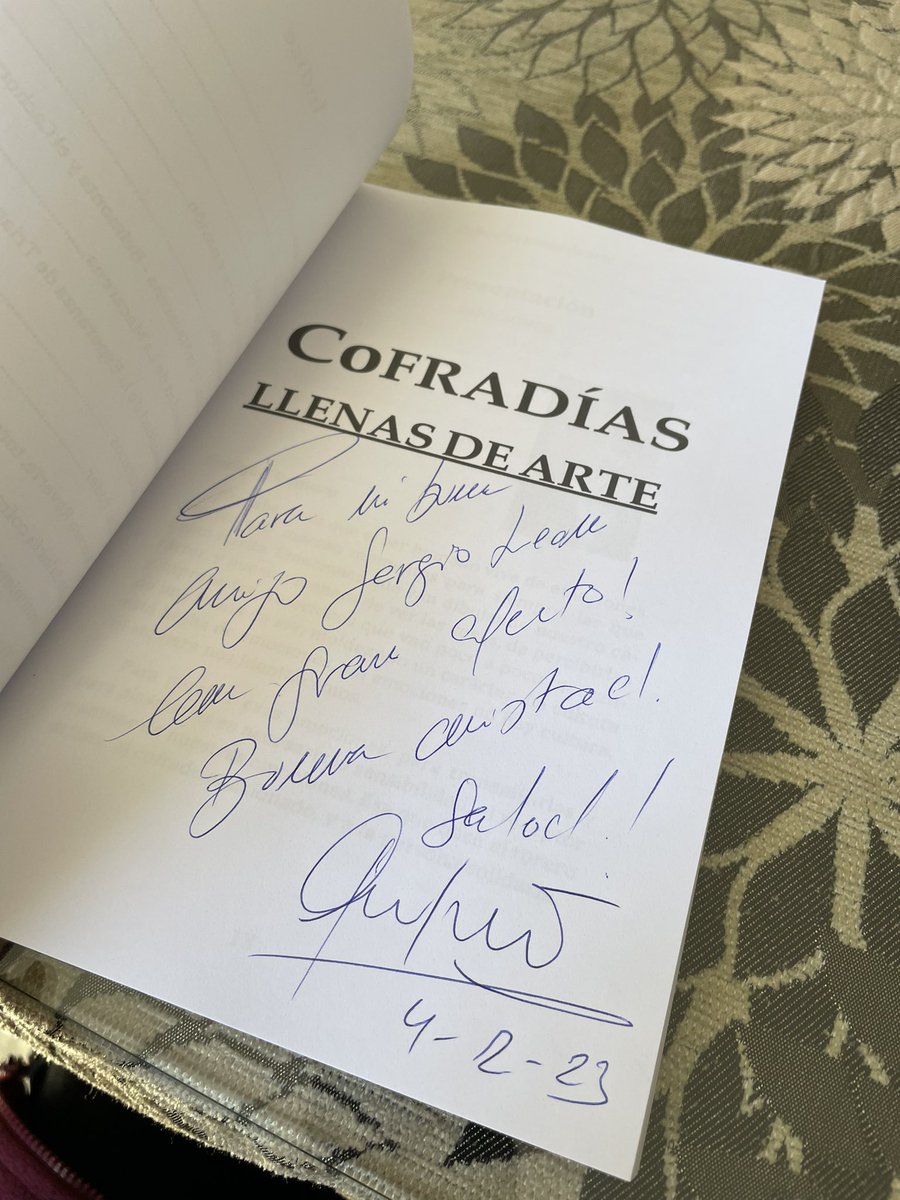 COFRADÍAS
LLENAS DE ARTE
Para mi buen
amigo Sergio Leon
con gran afecto!
Buena amistad.
Salud!
4-2-23